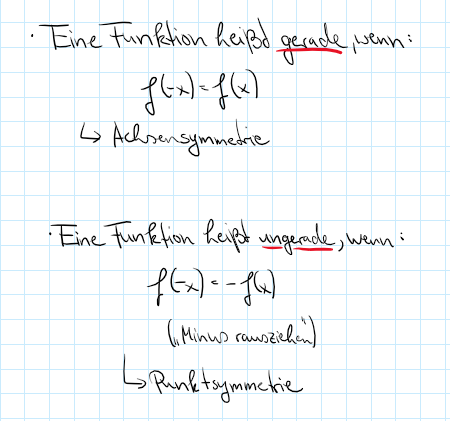 · Eine Funktion heißt gerade, wenn:
f(-x) = f(x)
↳ Achsensymmetrie
· Eine Funktion heißt ungerade, wenn:
f(-x) = -f(x)
("Minus rausziehen")
↳ Punktsymmetrie